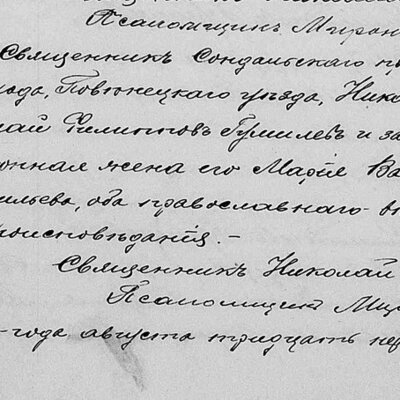 Псаломщикъ Мирон
Священникъ Сондальскаго пр
хода, Повѣнецкаго уѣзда, Нико
лай Филипповъ Гумилевъ и за
конная жена его Марія Ва
сильева, оба православнаго вѣ
роисповѣданія. –
Священникъ Николай
Псаломщикъ Мир
года августа тридцать пер